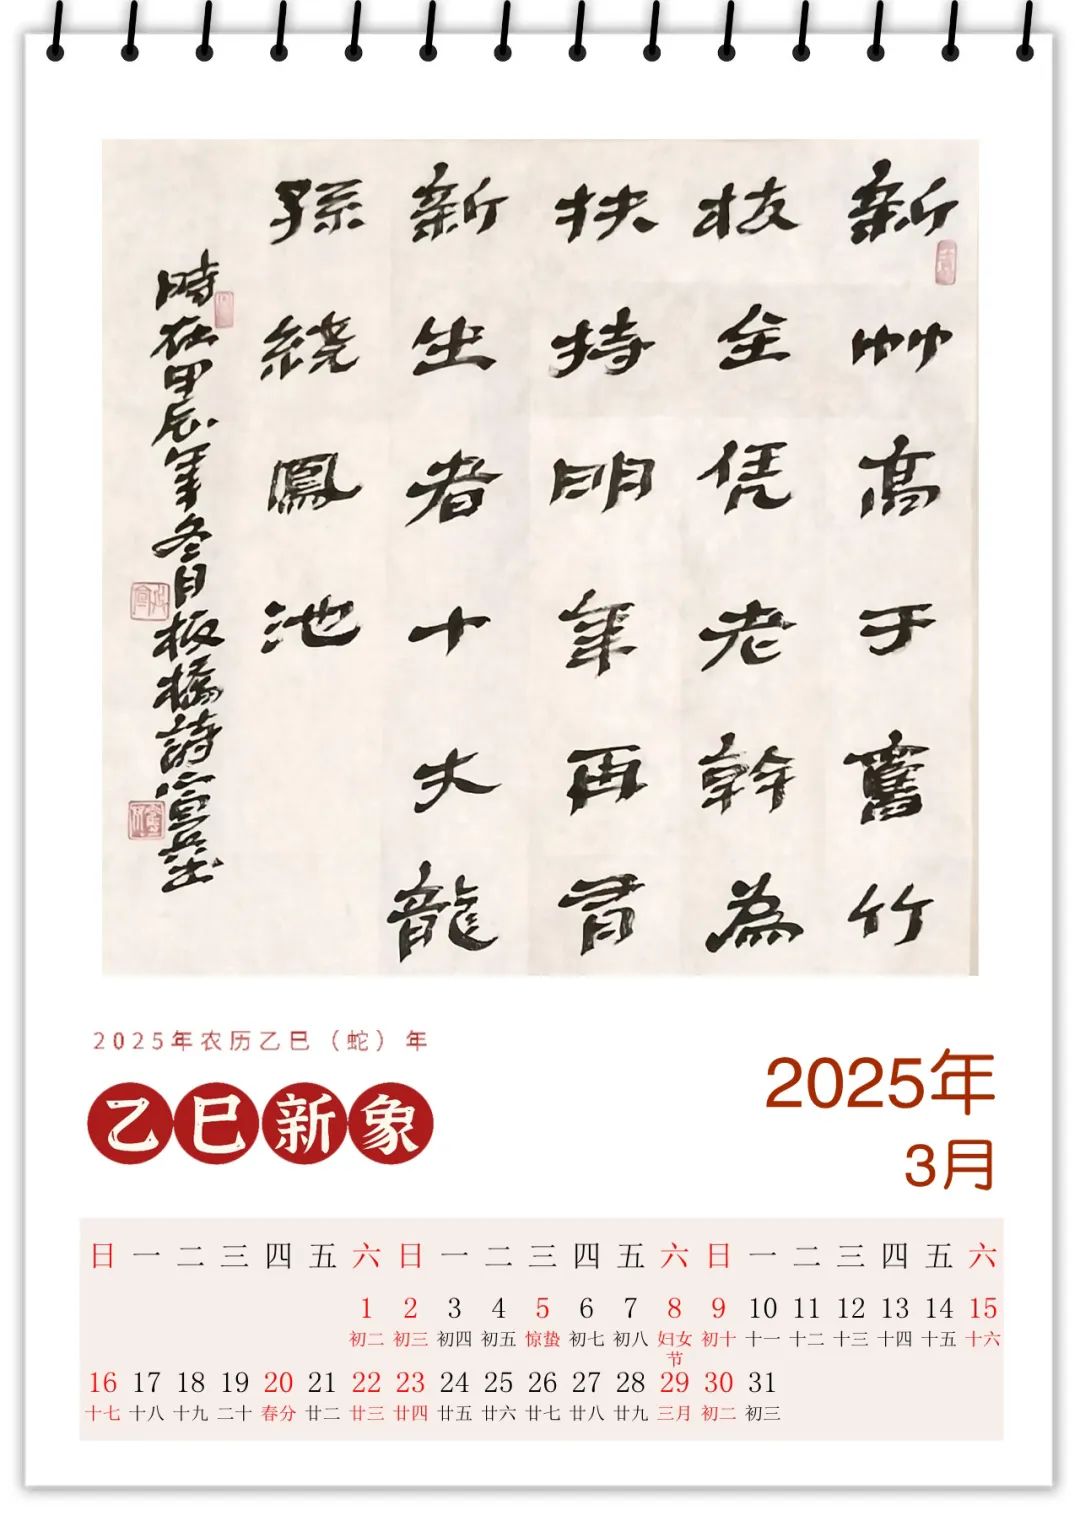 新竹高于舊竹
枝全凭老幹為
扶持明年再有
新生者十丈龍
孫繞鳳池
時在甲辰年冬月板橋詩
2025年农历乙巳（蛇）年
乙巳新象
2025年
3月
日 一 二 三 四 五 六 日 一 二 三 四 五 六 日 一 二 三 四 五 六
1 2 3 4 5 6 7 8 9 10 11 12 13 14 15
初二 初三 初四 初五 惊蛰 初七 初八 妇女节 初十 十一 十二 十三 十四 十五 十六
16 17 18 19 20 21 22 23 24 25 26 27 28 29 30 31
十七 十八 十九 二十 春分 廿二 廿三 廿四 廿五 廿六 廿七 廿八 廿九 三月 初二 初三